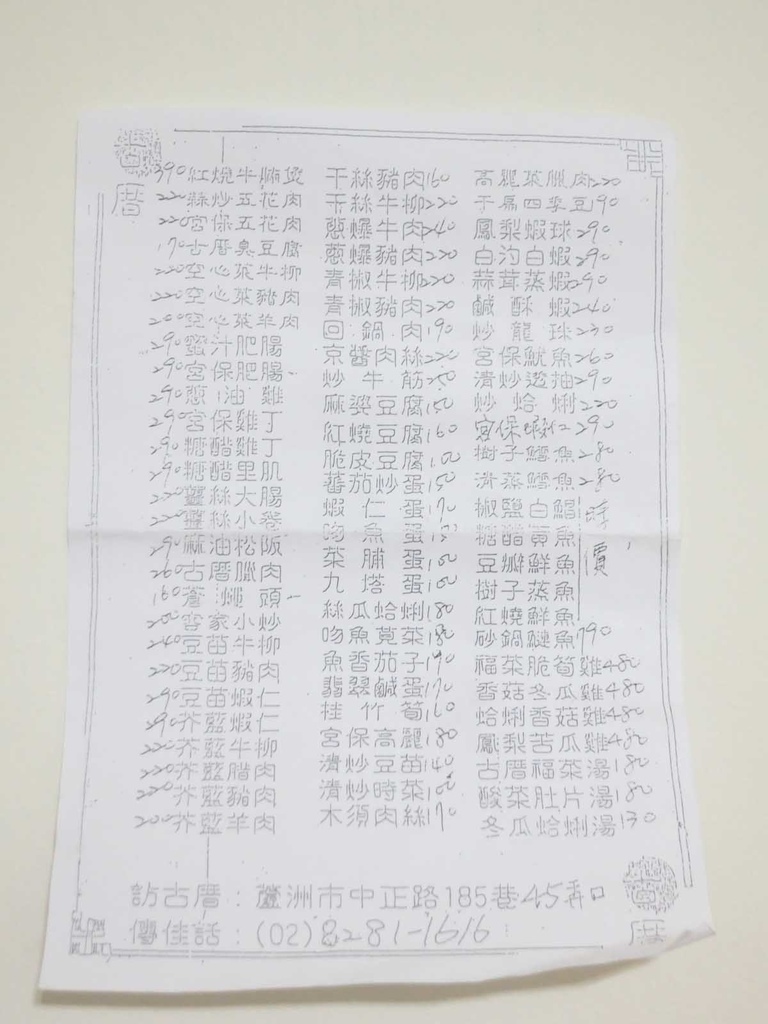 390紅燒牛腩煲
220蒜炒五花肉
220宮保五花肉
170古厝臭豆腐
220空心菜牛柳
220空心菜豬肉
200空心菜羊肉
290蜜汁肥腸
290宮保肥腸
290蔥油雞
290宮保雞丁
290糖醋雞丁
290糖醋里肌
220薑絲大腸
220薑絲小卷
290麻油松阪
260古厝臘肉
160蒼蠅頭
200客家小炒
240豆苗牛柳
220豆苗豬肉
290豆苗蝦仁
290芥藍蝦仁
220芥藍牛柳
220芥藍腊肉
220芥藍豬肉
200芥藍羊肉
干絲豬肉160
干絲牛柳220
蔥爆牛肉240
蔥爆豬肉220
青椒牛柳220
青椒豬肉220
回鍋肉190
京醬肉絲220
炒牛筋250
麻婆豆腐150
紅燒豆腐160
脆皮豆腐100
蕃茄炒蛋150
蝦仁蛋170
吻魚蛋
菜脯蛋100
九塔蛋100
絲瓜蛤蜊180
吻魚莧菜180
魚香茄子190
翡翠鹹蛋170
桂竹筍160
宮保高麗180
清炒豆苗140
清炒時菜100
木須肉絲170
高麗菜臘肉220
干扁四季豆190
鳳梨蝦球290
白灼白蝦290
蒜茸蒸蝦290
鹹酥蝦240
炒龍球230
宮保魷魚260
清炒透抽290
炒蛤蜊220
宮保蝦仁290
樹子鱈魚280
清蒸鱈魚280
椒鹽白鯧
糖醋黃魚
豆瓣鮮魚
樹子蒸魚
紅燒鮮魚
時價
砂鍋鰱魚790
福菜脆筍雞480
香菇冬瓜雞480
蛤蜊香菇雞480
鳳梨苦瓜雞480
古厝福菜湯180
酸菜肚片湯180
冬瓜蛤蜊湯130
訪古厝：蘆洲市中正路185巷45弄口
傳佳話：(02)8281-1616